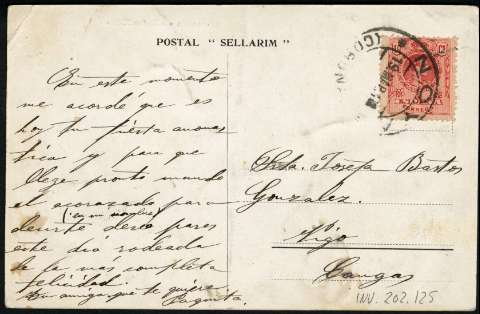 POSTAL “ SELLARIM ”
En este momento
me acordé que es
hoy tu fiesta onomas
tica y para que
llege pronto mando
el acorazado para
(en mi nombre)
decirte deseo pases
este dia rodeada
de la más completa
felicidad.
Tu amiga que te quiere
Paquita.
Srta. Josefa Bastos
Gonzalez.
Vigo
Cangas
INV. 202.125